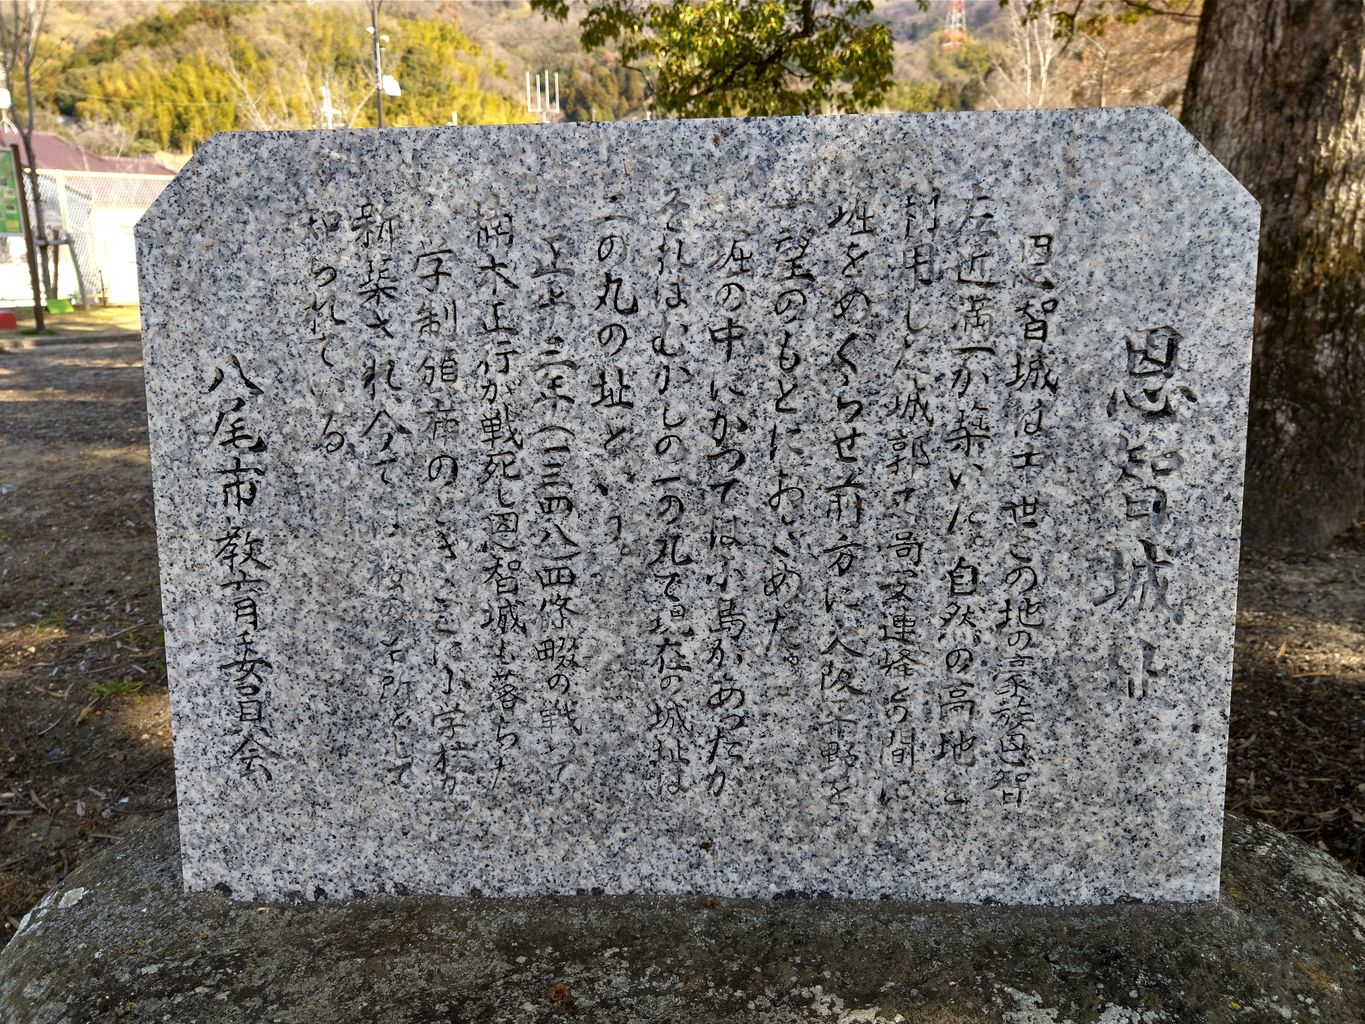 恩智城址
恩智城は中世この地の豪族恩智
左近満一が築いた。自然の高地を
利用した城郭で高安連峰との間に
堀をめぐらせ前方に大阪平野を
一望のもとにおさめた。
堀の中にかつては小島があったが
それはむかしの一の丸で現在の城址は
二の丸の址という。
正平三年(一三四八)四條畷の戦いで
楠木正行が戦死し恩智城も落ちた。
学制頒布のときここに小学校が
新築され今では桜の名所として
知られている
八尾市教育委員会